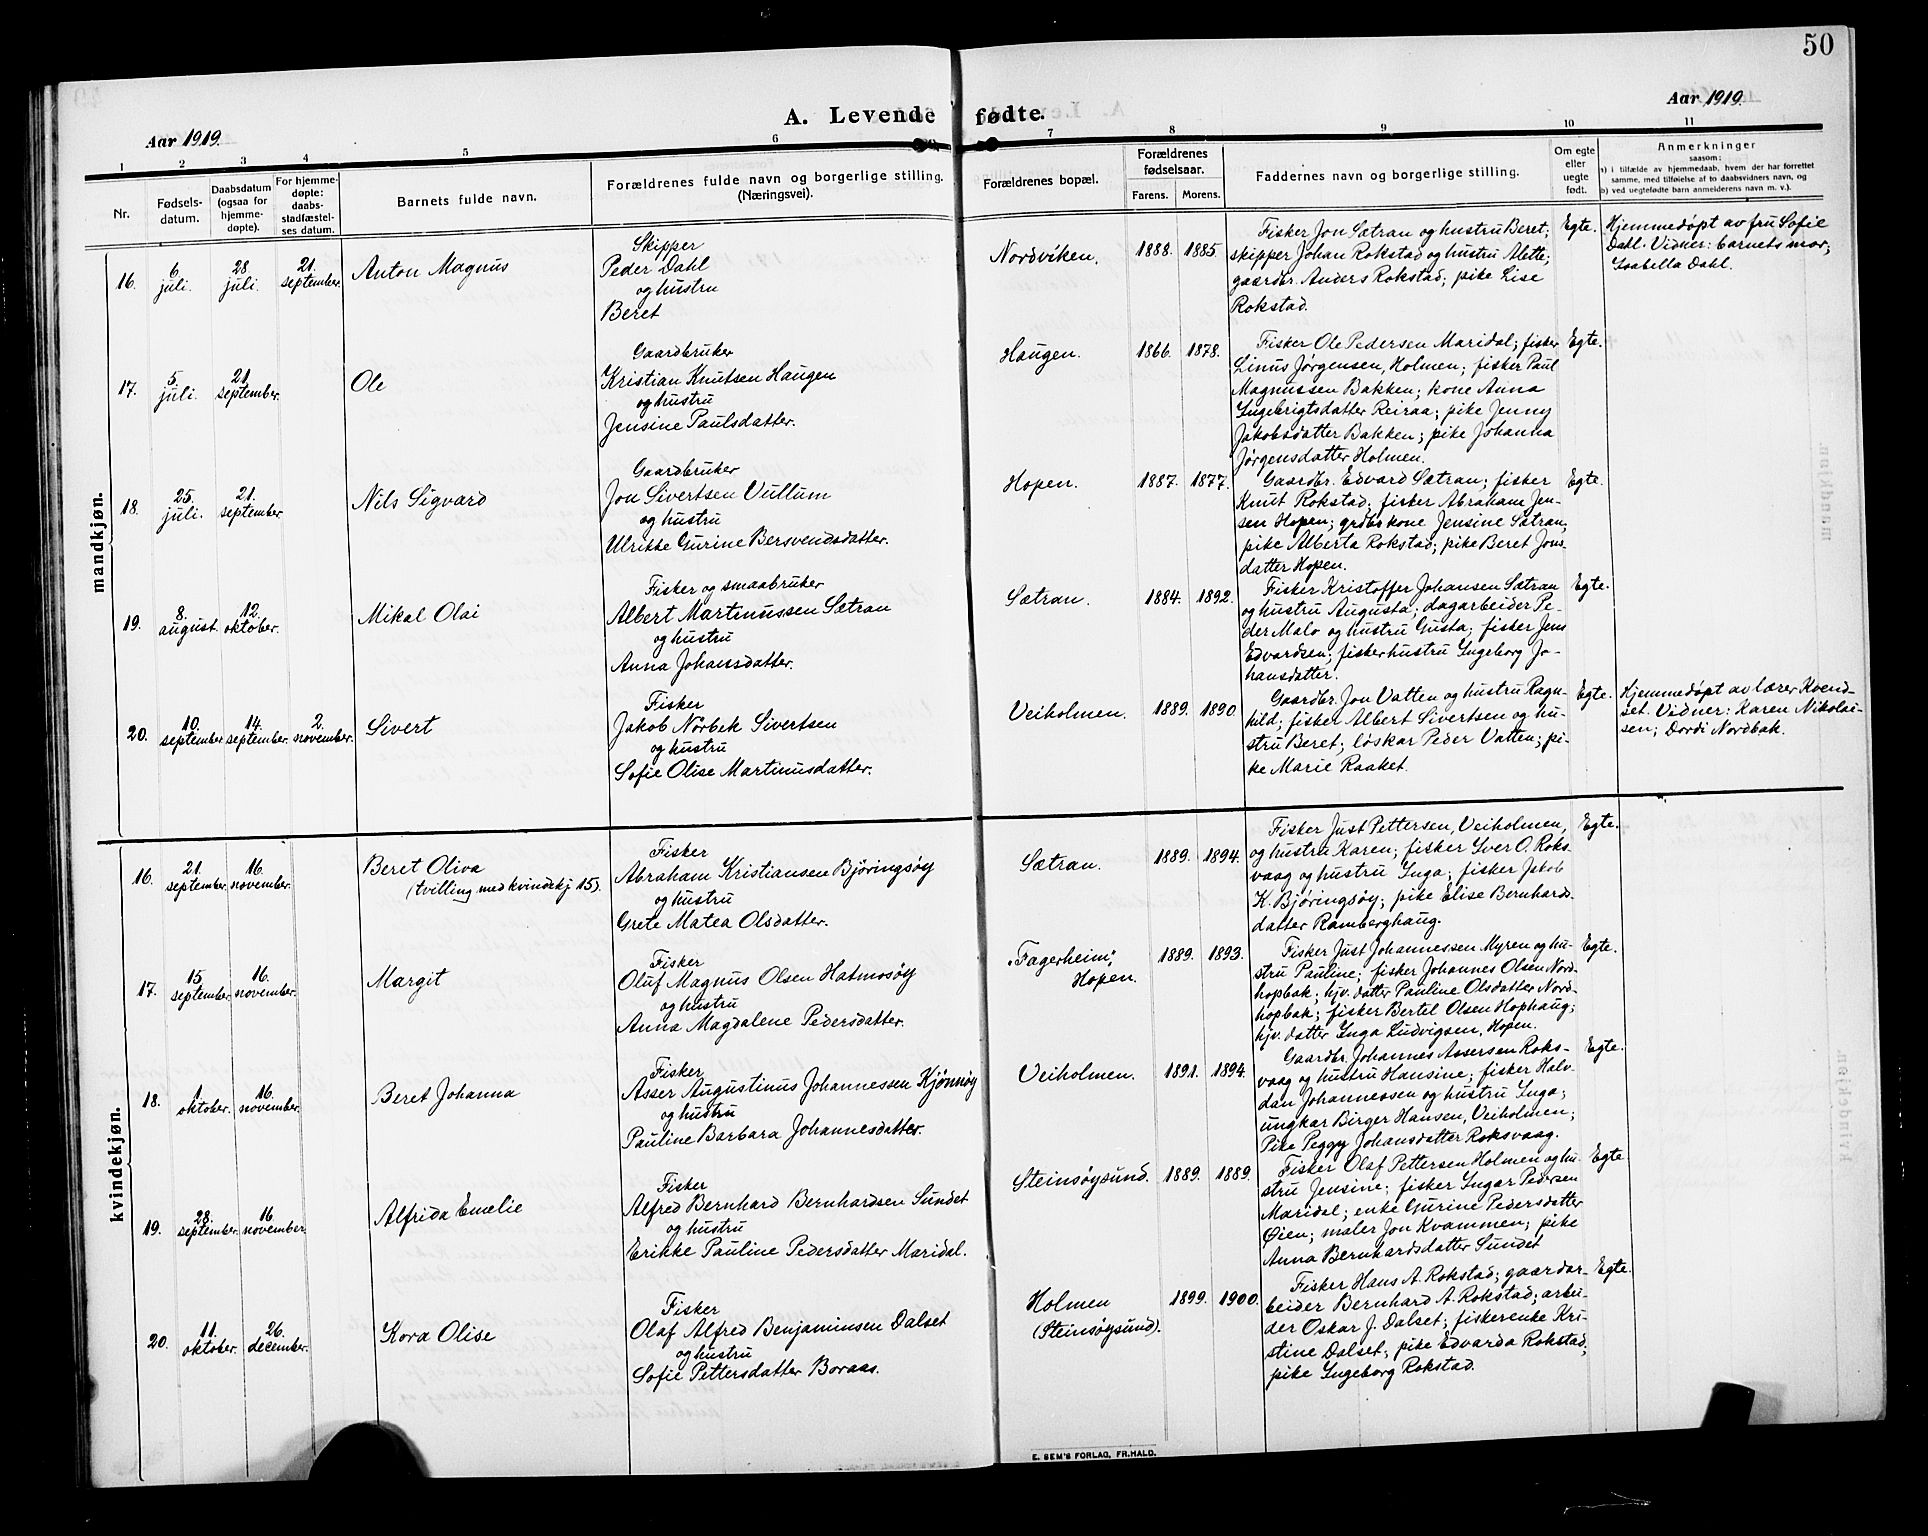 50
A. Levende fødte.
Aar 1919.
Aar 1919.
1
2
3
4
5
6
7
8
9
10
11
Nr.
Fødsels-
datum.
Daabsdatum
(ogsaa for
hjemme-
døpte).
For hjemme-
døpte:
daabs-
stadfæstel-
ses datum.
Barnets fulde navn.
Forældrenes fulde navn og borgerlige stilling.
(Næringsvei).
Forældrenes bopæl.
Forældrenes
fødselsaar.
Farens.
Morens.
Faddernes navn og borgerlige stilling.
Om egte
eller
uegte
født.
Anmerkninger
saasom:
a) i tilfælde av hjemmedaab, hvem der har forrettet
samme, med tilføielse af to daabsvidners navn, og
b) ved uegtefødte barn anmelderens navn m. v.).
mandkjøn.
16.
6.
juli.
28.
juli.
21.
september.
Anton Magnus
Skipper
Peder Dahl
og hustru
Beret
Nordviken.
1888.
1885.
Fisker Jon Sætran og hustru Beret;
skipper Johan Rokstad og hustru Alette;
gaardbr. Anders Rokstad; pike Lise
Rokstad.
Egte.
Hjemmedøpt av fru Sofie
Dahl. Vidner: barnets mor;
Isabella Dahl.
17.
5.
juli.
21.
september.
Ole
Gaardbruker
Kristian Knutsen Haugen
og hustru
Jensine Paulsdatter.
Haugen.
1866.
1878.
Fisker Ole Pedersen Maridal; fisker
Linus Jørgensen, Holmen; fisker Paul
Magnussen Bakken; kone Anna
Ingebrigtsdatter Reiraa; pike Jenny
Jakobsdatter Bakken; pike Johanna
Jørgensdatter Holmen.
Egte.
18.
25.
juli.
21.
september.
Nils Sigvard
Gaardbruker
Jon Sivertsen Vullum
og hustru
Ulrikke Gurine Bersvendsdatter.
Hopen.
1887.
1877.
Gaardbr. Edvard Sætran; fisker
Knut Rokstad; fisker Abraham Jen-
sen Hopen; grdbr kone Jensine Sætran;
pike Alberta Rokstad; pike Beret Jons-
datter Hopen.
Egte.
19.
8.
august.
12.
oktober.
Mikal Olai
Fisker og smaabruker
Albert Martinussen Sætran
og hustru
Anna Johansdatter.
Sætran.
1884.
1892.
Fisker Kristoffer Johansen Sætran
og hustru Augusta; dagarbeider Pe-
der Malo og hustru Gusta; fisker Jens
Edvardsen; fiskerhustru Ingeborg Jo-
hansdatter.
Egte.
20.
10.
september
14.
september.
2.
november.
Sivert
Fisker
Jakob Norbek Sivertsen
og hustru
Sofie Olise Martinusdatter.
Veiholmen.
1889.
1890
Gaardbr. Jon Vatten og hustru Ragn-
hild; fisker Albert Sivertsen og hu-
stru Beret; løskar Peder Vatten; pi-
ke Marie Raaket.
Egte.
Hjemmedøpt av lærer Kvend-
set. Vidner: Karen Nikolai-
sen; Dordi Nordbak.
kvindekjøn.
16.
21.
september.
16.
november.
Beret Oliva
(tvilling med kvindekj 15).
Fisker
Abraham Kristiansen Bjøringsøy
og hustru
Grete Matea Olsdatter.
Sætran.
1889.
1894.
Fisker Just Pettersen, Veiholmen,
og hustru Karen; fisker Iver O. Roks-
vaag og hustru Inga; fisker Jakob
K. Bjøringsøy; pike Elise Bernhards-
datter Ramberghaug.
Egte.
17.
15.
september.
16.
november.
Margit
Fisker
Oluf Magnus Olsen Hatmosøy
og hustru
Anna Magdalene Pedersdatter.
"Fagerheim",
Hopen.
1889.
1893.
Fisker Just Johannessen Myren og hu-
stru Pauline; fisker Johannes Olsen Nord-
hopbak; hjv. datter Pauline Olsdatter Nord-
hopbak; fisker Bertel Olsen Hophaug;
hjv. datter Inga Ludvigsen, Hopen.
Egte.
18.
1.
oktober.
16.
november.
Beret Johanna
Fisker
Asser Augustinus Johannessen Kjønnøy
og hustru
Pauline Barbara Johannesdatter.
Veiholmen.
1891.
1894.
Gaardbr. Johannes Assersen Roks-
vaag og hustru Hansine; fisker Halv-
dan Johannessen og hustru Inga;
ungkar Birger Hansen, Veiholmen;
Pike Peggy Johansdatter Roksvaag.
Egte.
19.
28.
september.
16.
november.
Alfrida Emelie
Fisker
Alfred Bernhard Bernhardsen Sundet
og hustru
Erikke Pauline Pedersdatter Maridal.
Steinsøysund.
1889.
1889.
Fisker Olaf Pettersen Holmen og hu-
stru Jensine; fisker Ingar Pedersen
Maridal; enke Gurine Pedersdatter
Øien; maler Jon Kvammen; pike
Anna Bernhardsdatter Sundet
Egte
20.
11.
oktober.
26.
december.
Kora Olise
Fisker
Olaf Alfred Benjaminsen Dalset
og hustru
Sofie Pettersdatter Boraas.
Holmen
(Steinsøysund).
1899.
1900.
Fisker Hans A. Rokstad; gaardar-
beider Bernhard A. Rokstad; arbei-
der Oskar J. Dalset; fiskerenke Kri-
stine Dalset; pike Edvarda Rokstad;
pike Ingeborg Rokstad.
Egte.
E. SEM'S FORLAG, FR.HALD.